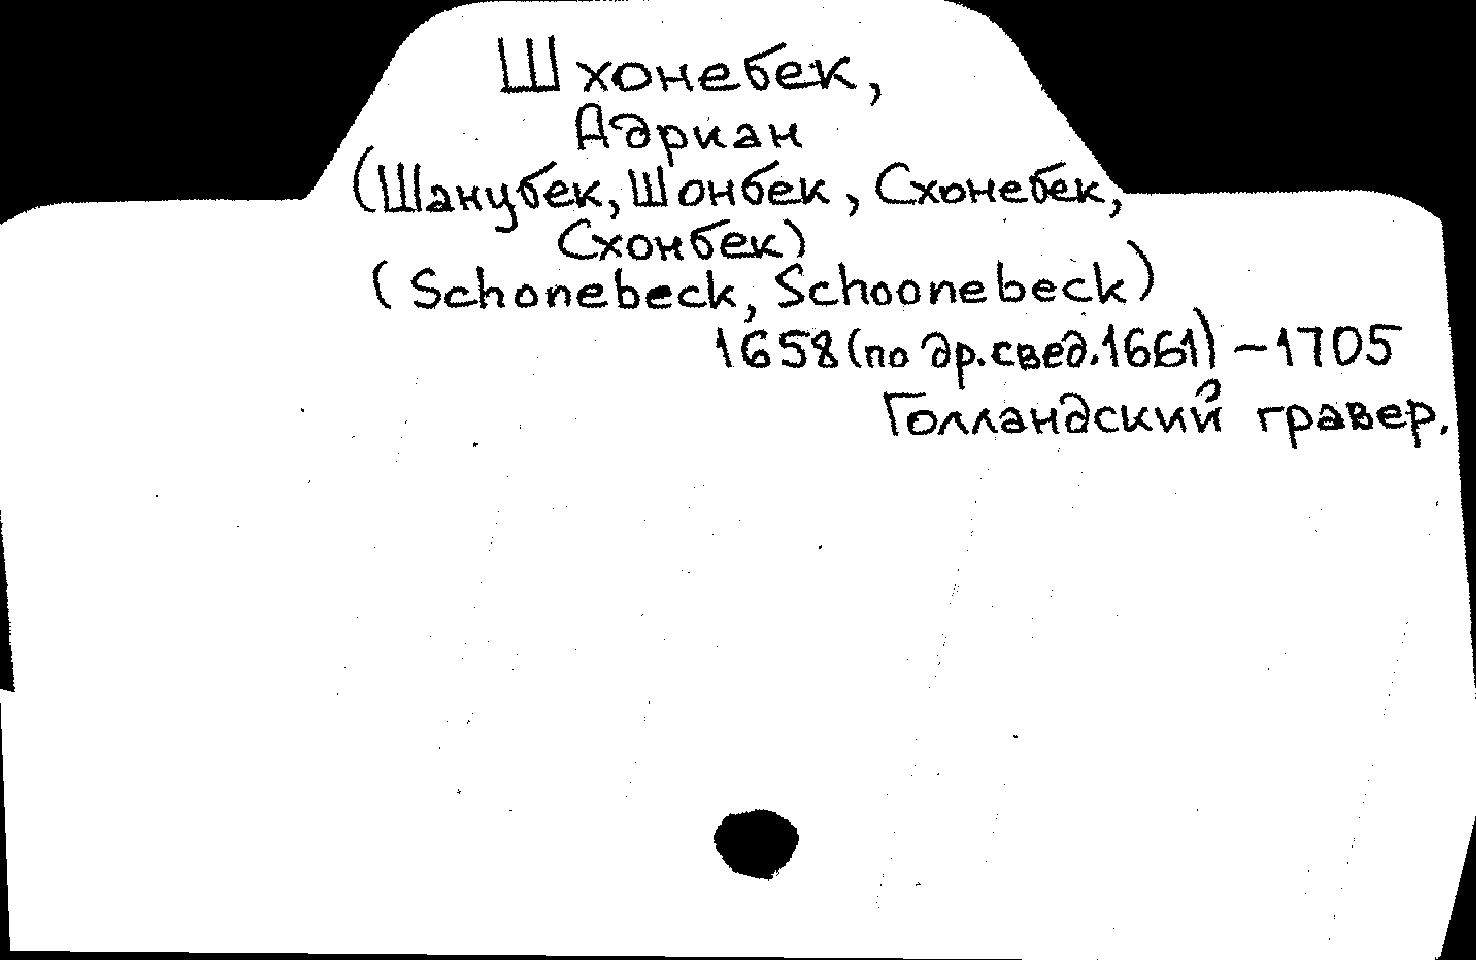 Шхонебек,
Адриан
(Шанубек, Шонбек, Схонебек,
Схонбек)
(Schonebeck, Schoonebeck)
1658 (по др. свед. 1661) – 1705
Голландский гравер.